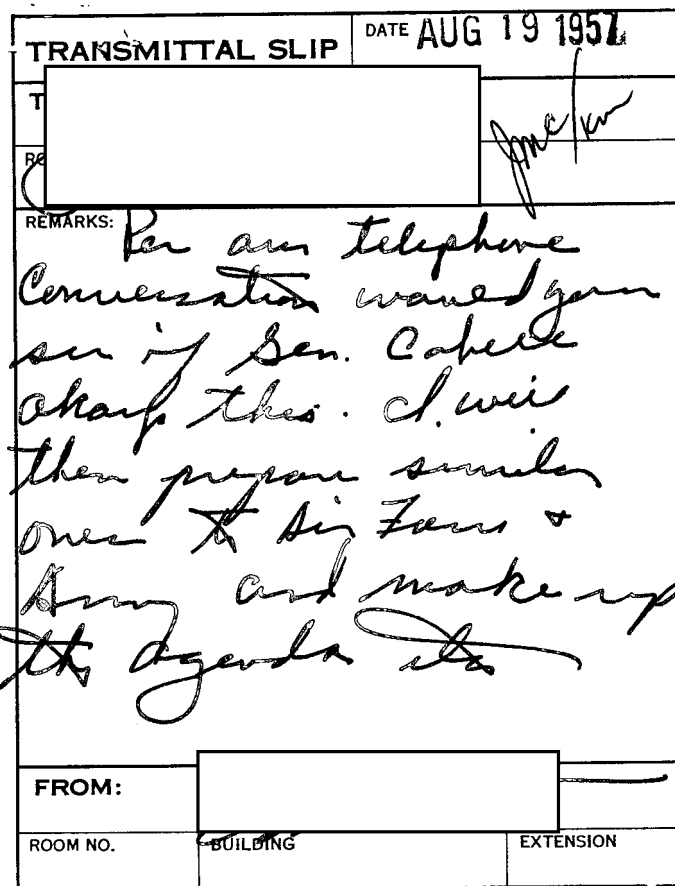 TRANSMITTAL SLIP
DATE AUG 19 1957
REMARKS:
Per our telephone
Conversation would you
see if Gen. Cabell
okays this. I will
then prepare similar
ones to Air Force &
Army and make up
the Agenda etc
FROM:
ROOM NO.
BUILDING
EXTENSION